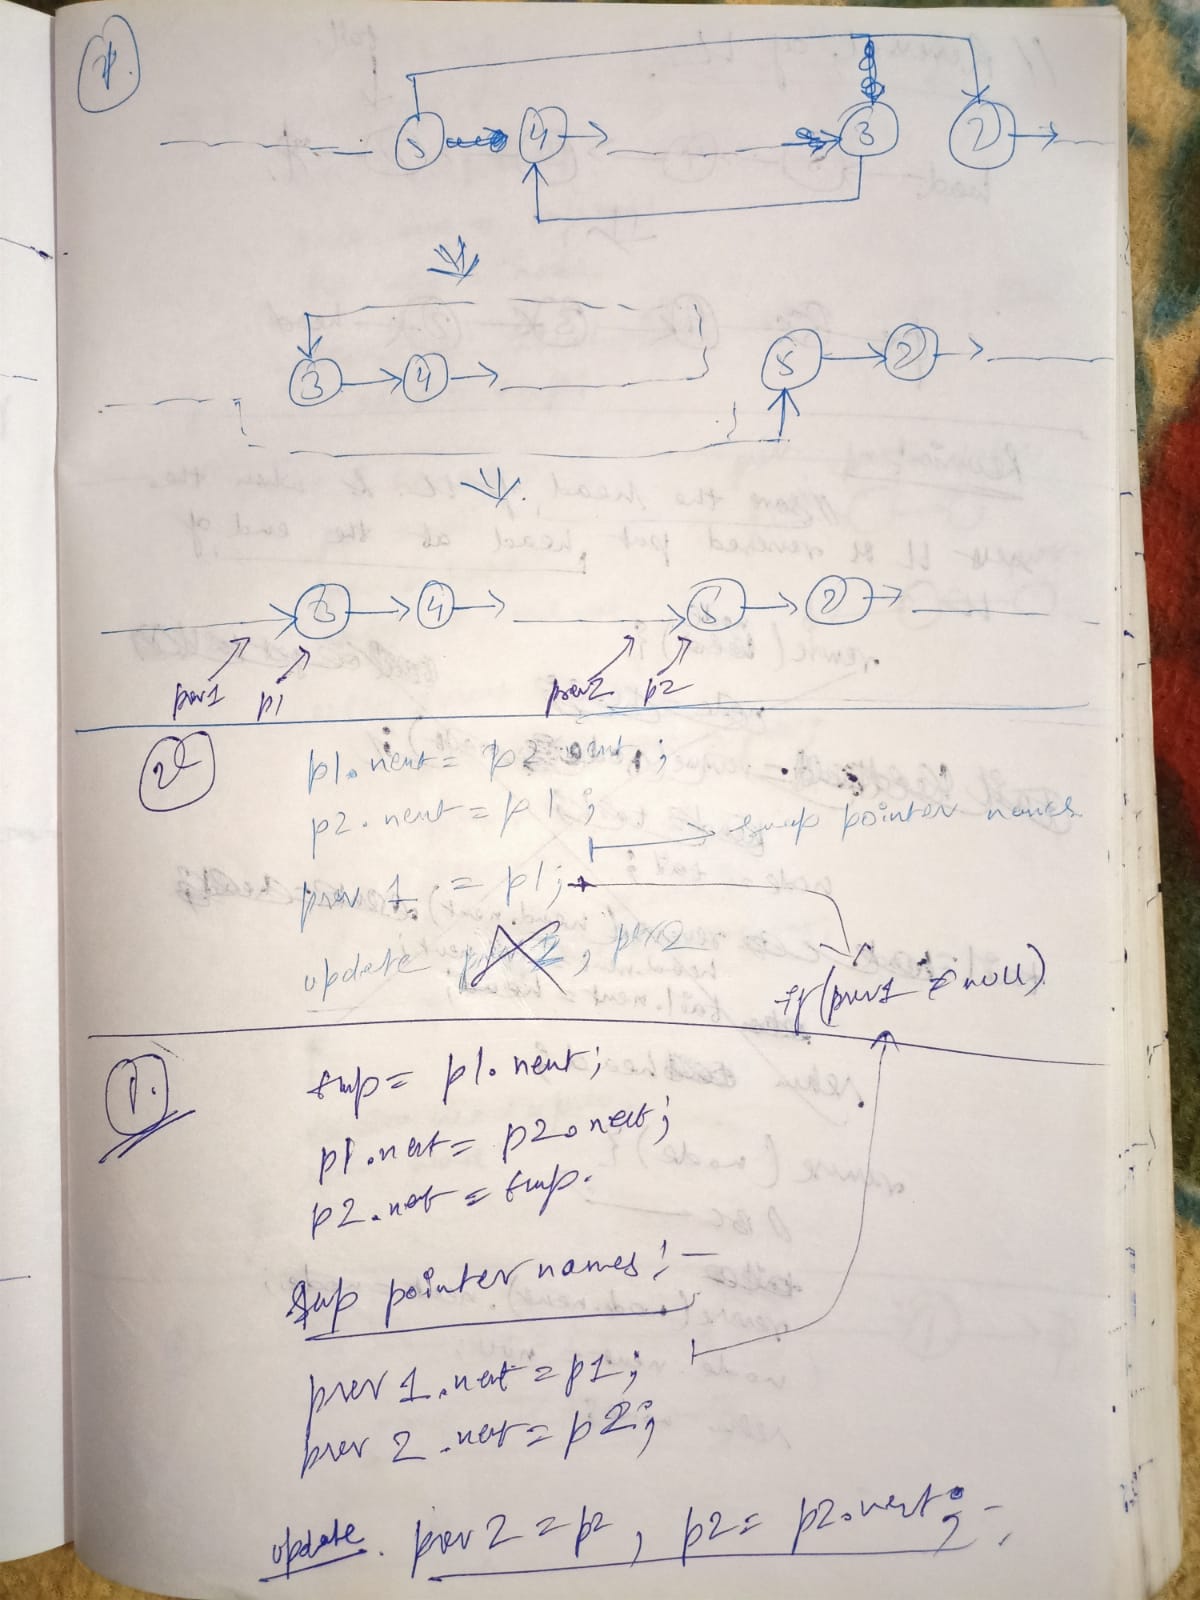 1.
5 4 3 2
3 4 5 2
3 4 5 2
prev1 p1 prev2 p2
2
p1.next = p2.next;
p2.next = p1;
swap pointer names
prev 1. = p1;
update prev 2
if (prev1 ≠ null)
1.
tmp = p1.next;
p1.next = p2.next;
p2.next = tmp.
Swap pointer names:-
prev 1.next = p1;
prev 2.next = p2;
update. prev 2 = p2, p2 = p2.next;